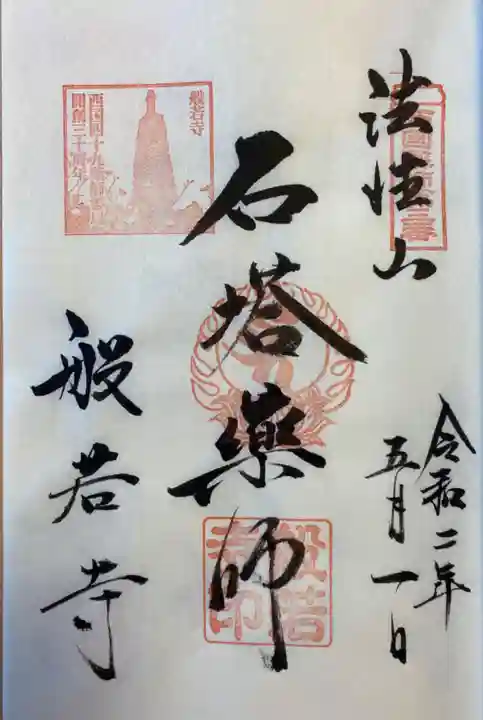 法性山
令和二年
五月一日
石塔薬師
般若寺
般若寺
西国四十九薬師霊場
開創三十周年
般若寺印